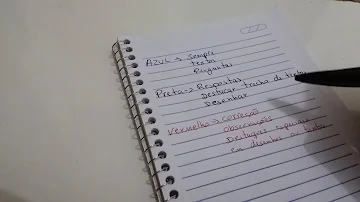 Azul → Sempre
textos
Perguntas
Preta → Respostas
Destacar trecho de textos
Desenhar
Vermelho → correção
observações
Destaques
em desenhos ou textos